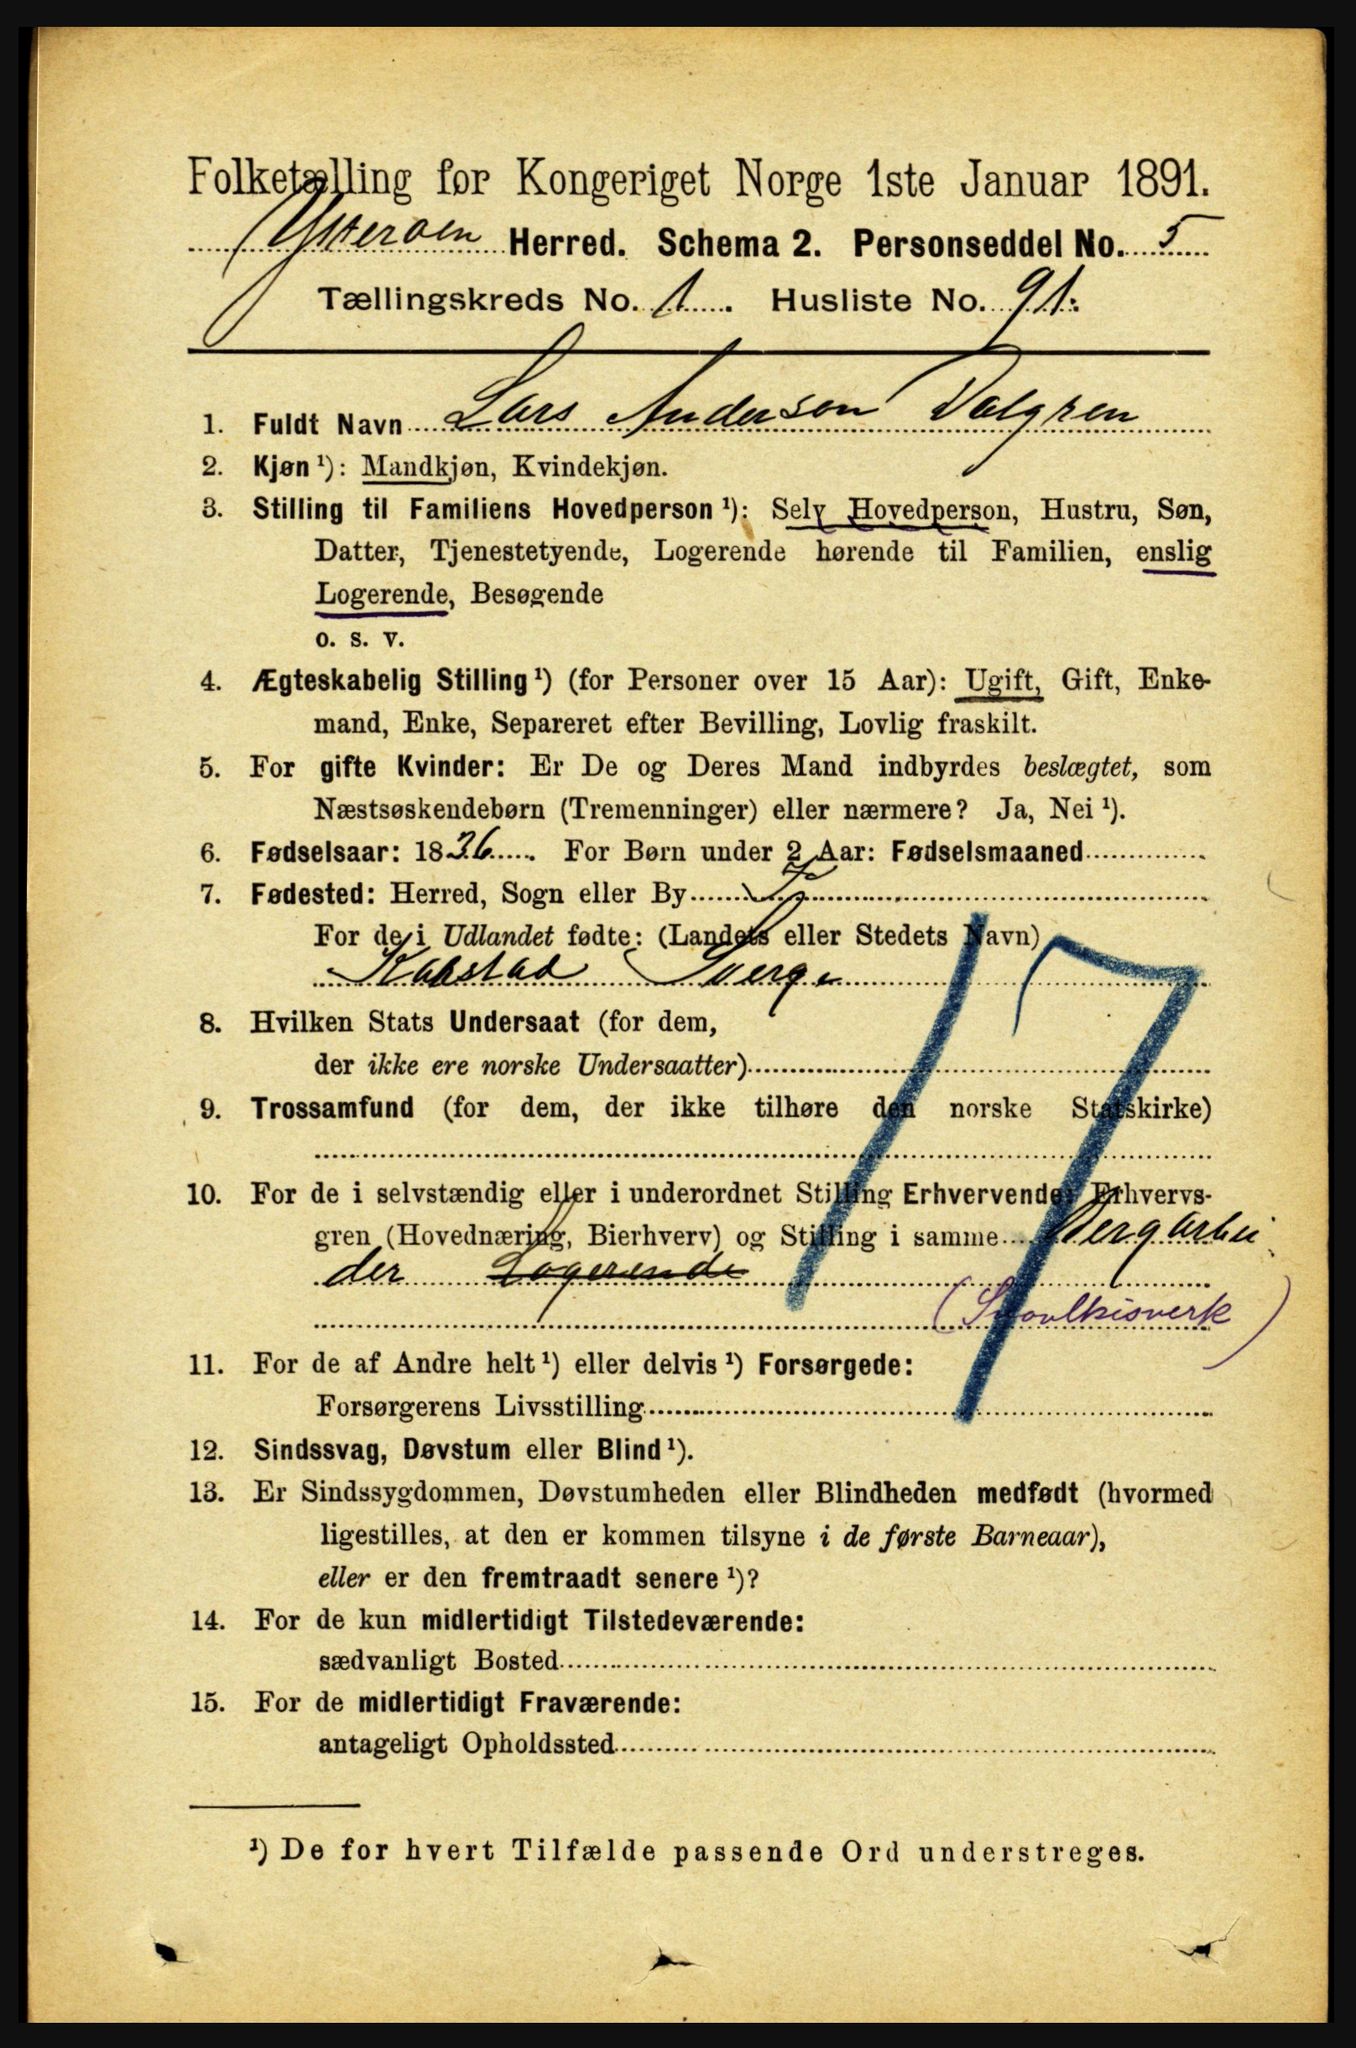 Folketælling for Kongeriget Norge 1ste Januar 1891.
Ytterøen Herred. Schema 2. Personseddel No. 5
Tællingskreds No. 1. Husliste No. 91.
1. Fuldt Navn Lars Anderson Dalgren
2. Kjøn ¹): Mandkjøn, Kvindekjøn.
3. Stilling til Familiens Hovedperson ¹): Selv Hovedperson, Hustru, Søn,
Datter, Tjenestetyende, Logerende hørende til Familien, enslig
Logerende, Besøgende
o. s. v.
4. Ægteskabelig Stilling ¹) (for Personer over 15 Aar): Ugift, Gift, Enke-
mand, Enke, Separeret efter Bevilling, Lovlig fraskilt.
5. For gifte Kvinder: Er De og Deres Mand indbyrdes beslægtet, som
Næstsøskendebørn (Tremenninger) eller nærmere? Ja, Nei ¹).
6. Fødselsaar: 1836. For Børn under 2 Aar: Fødselsmaaned
7. Fødested: Herred, Sogn eller By
For de i Udlandet fødte: (Landets eller Stedets Navn)
Sverge
8. Hvilken Stats Undersaat (for dem,
der ikke ere norske Undersaatter)
9. Trossamfund (for dem, der ikke tilhøre den norske Statskirke)
10. For de i selvstændig eller i underordnet Stilling Erhvervende: Erhvervs-
gren (Hovednæring, Bierhverv) og Stilling i samme Bergarbei
der Logerende
(Svovlkisverk)
17
11. For de af Andre helt ¹) eller delvis ¹) Forsørgede:
Forsørgerens Livsstilling
12. Sindssvag, Døvstum eller Blind ¹).
13. Er Sindssygdommen, Døvstumheden eller Blindheden medfødt (hvormed
ligestilles, at den er kommen tilsyne i de første Barneaar),
eller er den fremtraadt senere ¹)?
14. For de kun midlertidigt Tilstedeværende:
sædvanligt Bosted
15. For de midlertidigt Fraværende:
antageligt Opholdssted
¹) De for hvert Tilfælde passende Ord understreges.